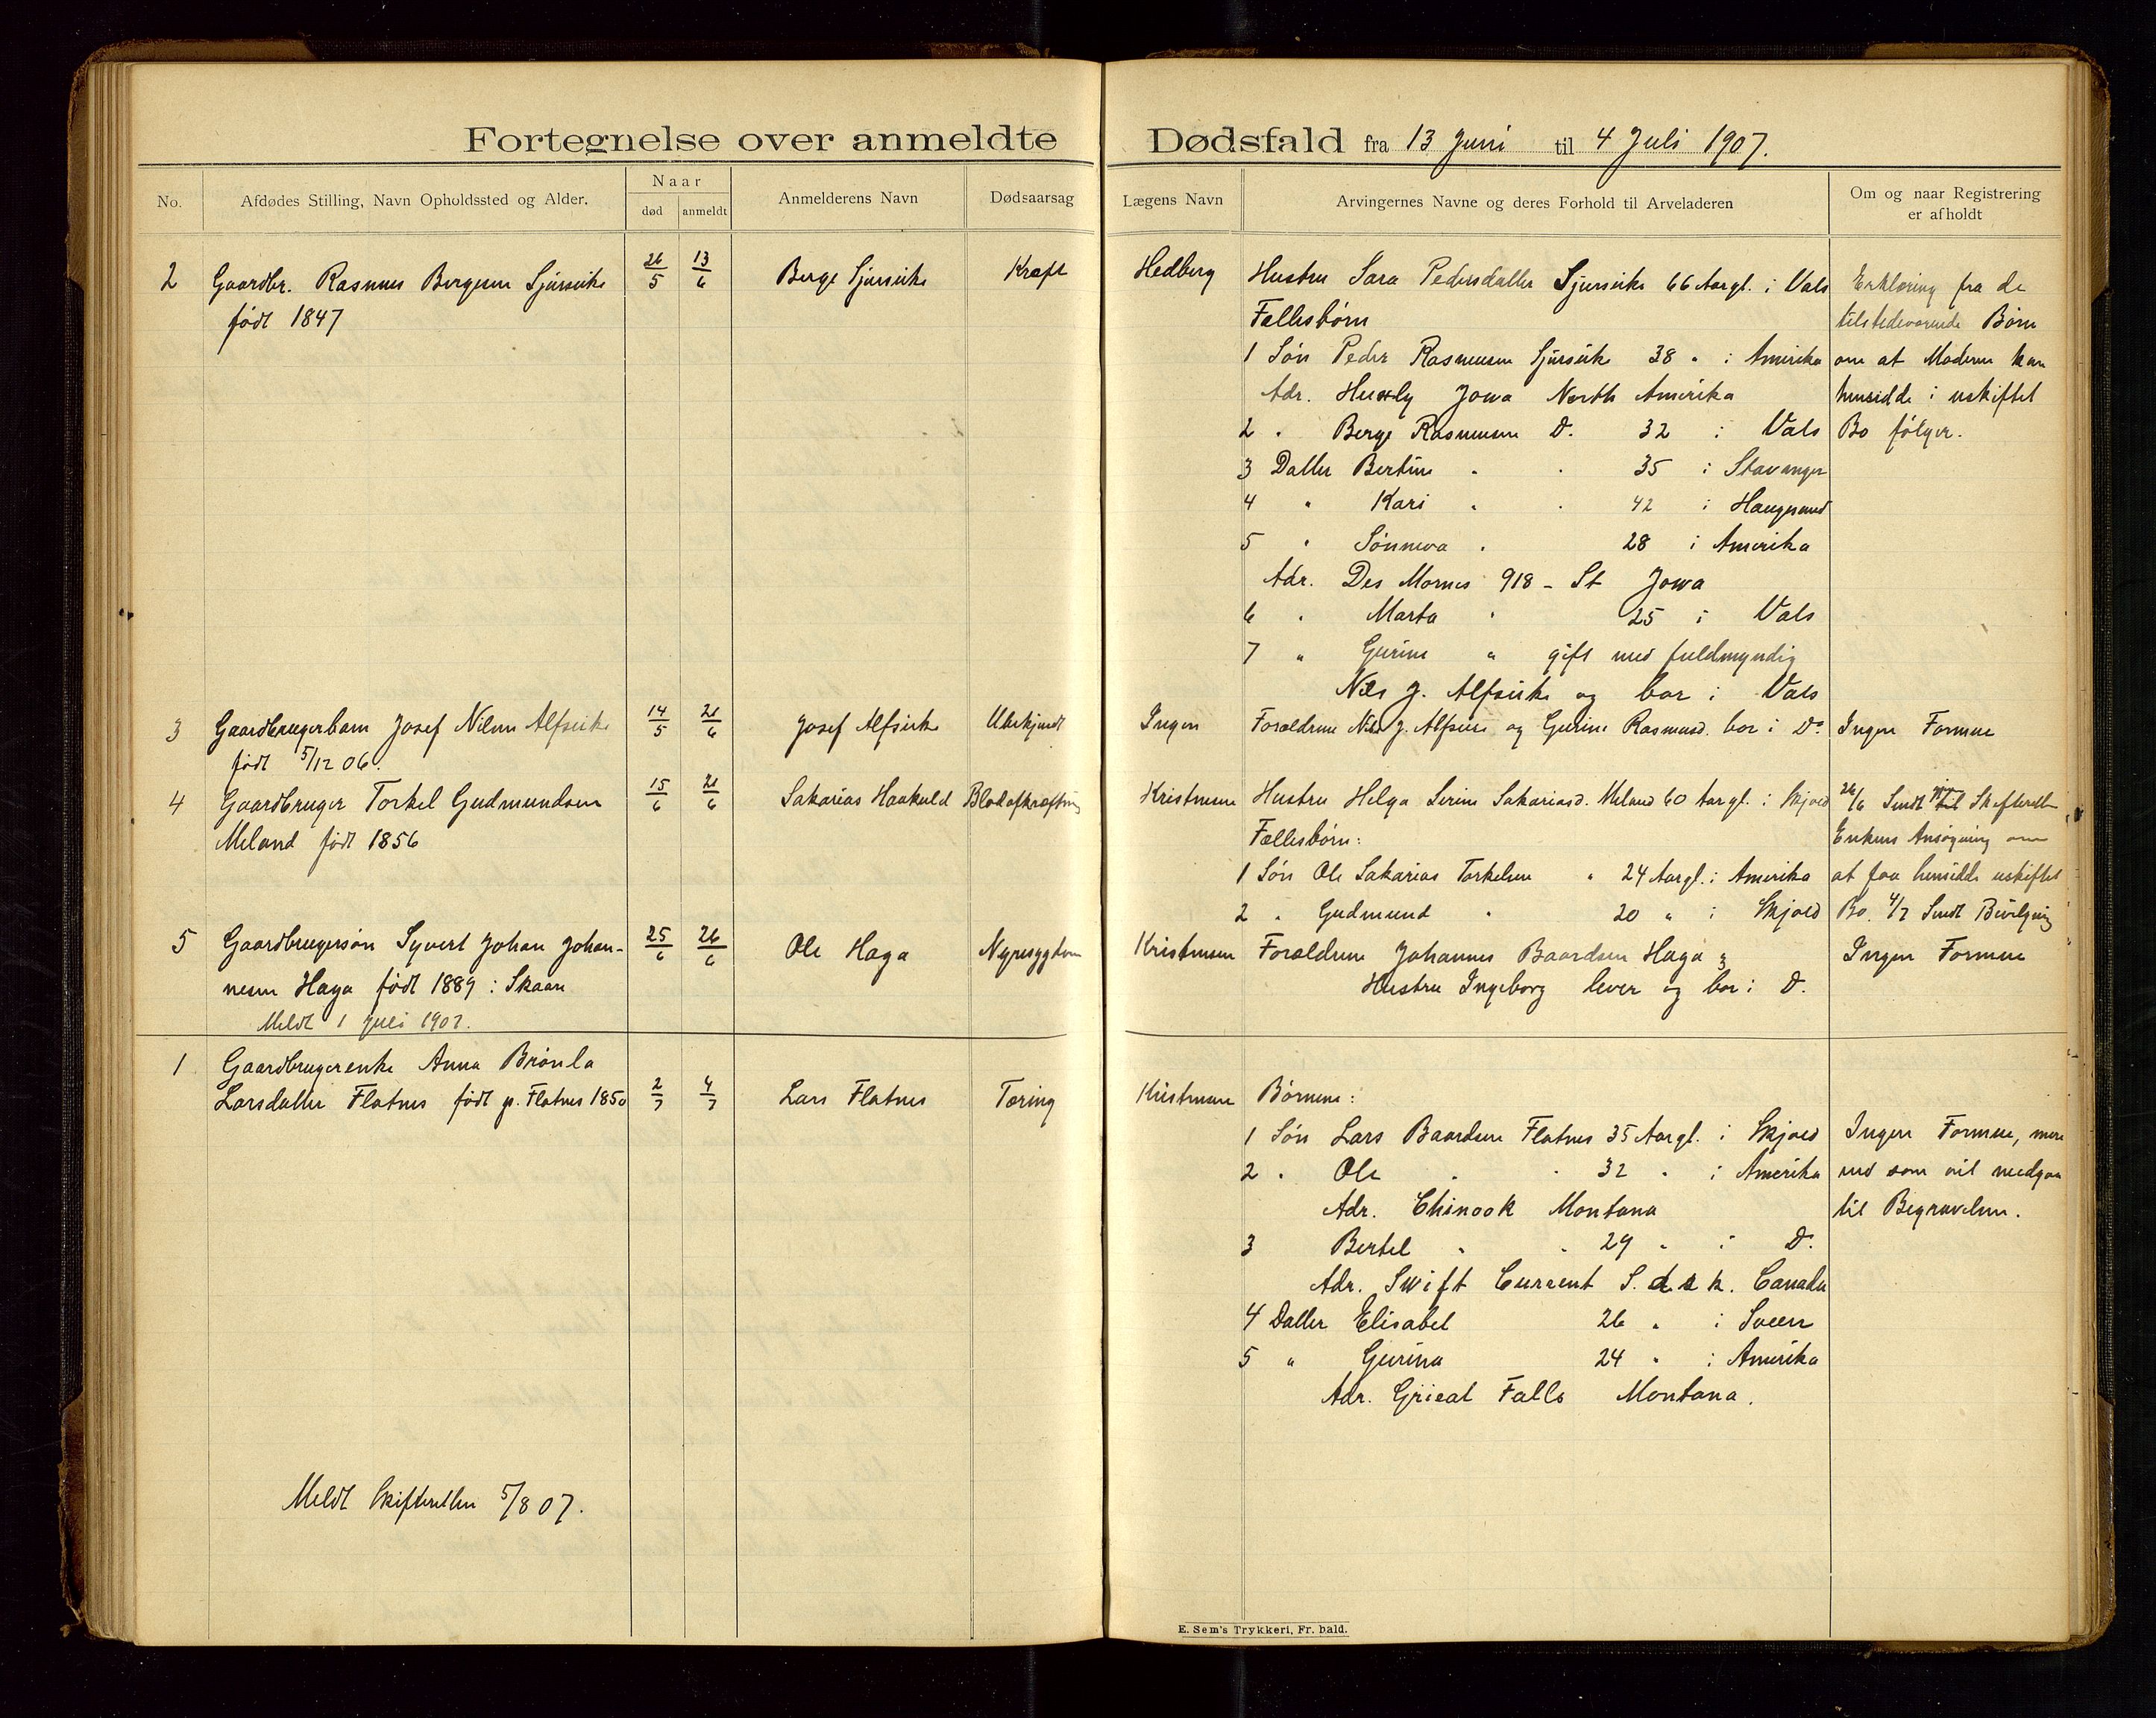 Fortegnelse over anmeldte Dødsfald fra 13 Juni til 4 Juli 1907.
No.
Afdødes Stilling, Navn Opholdssted og Alder.
Naar
død
anmeldt
Anmelderens Navn
Dødsaarsag
Lægens Navn
Arvingernes Navne og deres Forhold til Arveladeren
Om og naar Registrering
er afholdt
2 Gaardbr. Rasmus Bergesen Sjursvike 26/5 13/6 Berge Sjursvike Kræft
født 1847
Hedberg
Hustru Sara Pedersdatter Sjursvike 66 Aargl. i Vats
Fællesbørn
1 Søn Peder Rasmusen Sjursvike 38 " i Amerika
Adr. Huxly Jowa North Amerika
2 " Berge Rasmusen Do. 32 i Vats
3 Datter Bertine " " 35 i Stavanger
4 " Kari " " 42 i Haugesund
5 " Sønneva " 28 i Amerika
Adr. Des Mornes 918 - St Jowa
6 " Marta " 25 i Vats
7 " Gurine " gift med fuldmyndig
Nils J. Alfsvike og bor i Vats
Erklæring fra de
tilstedeværende Børn
om at Moderen kan
hensidde i uskiftet
Bo følger.
3 Gaardbrugerbarn Josef Nilsen Alfsvike 14/5 21/6 Josef Alfsvike Ubekjendt
født 5/12 06.
Ingen
Forældrene Nils J. Alfsvike og Gurine Rasmusd. bor i Do.
Ingen Formue
4 Gaardbruger Torkel Gudmundsen 15/6 21/6 Sakarias Haakuld Blodafkræftning
Meland født 1856
Kristensen
Hustru Helga Serine Sakariasd. Meland 60 Aargl. i Skjold
Fællesbørn:
1 Søn Ole Sakarias Torkelsen " 24 Aargl. i Amerika
2 " Gudmund " 20 " i Skjold
26/6 Sendt til Skifteretten
Enkens Ansøgning om
at faa hensidde uskiftet
Bo. 4/7 Sendt Bevilgning
5 Gaardbrugersøn Syvert Johan Johan- 25/6 26/6 Ole Haga Nyresygdom
nesen Haga født 1889 i Skaare
Meldt 1 Juli 1907.
Kristensen
Forældrene Johannes Baardsen Haga og
Hustru Ingeborg lever og bor i Do.
Ingen Formue
1 Gaardbrugerenke Anna Brønla
Larsdatter Flatnes født p. Flatnes 1850 2/7 4/7 Lars Flatnes Tæring
Kristensen
Børnene:
1 Søn Lars Baardsen Flatnes 35 Aargl. i Skjold
2 " Ole " " 32 " i Amerika
Adr. Chinook Montana
3 Bertel " " 29 " i Do.
Adr. Swift Current S.ask. Canada
4 Datter Elisabet 26 " i Sveen
5 " Gurina 24 " i Amerika
Adr. Grieat Falls Montana.
Ingen Formue, mere
end som vil medgaa
til Begravelsen.
Meldt Skifteretten 5/8 07.
E. Sem's Trykkeri, Fr. hald.